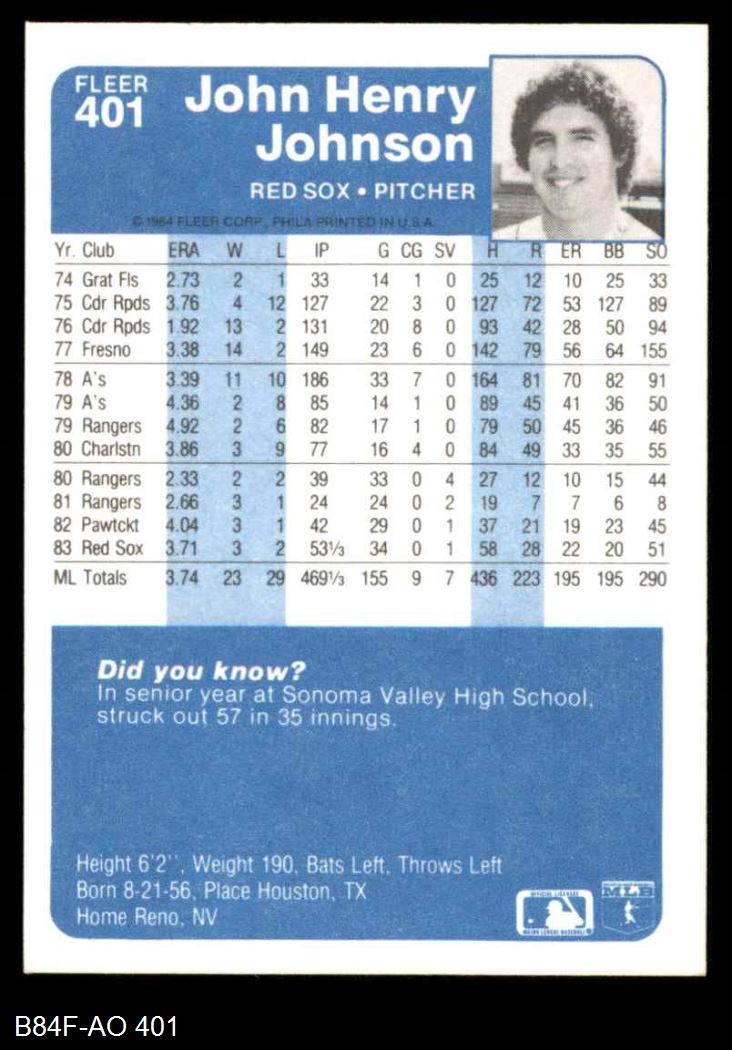 FLEER
401
John Henry
Johnson
RED SOX • PITCHER
© 1984 FLEER CORP., PHILA PRINTED IN U.S.A.
Yr. Club ERA W L IP G CG SV H R ER BB SO
74 Grat Fls 2.73 2 1 33 14 1 0 25 12 10 25 33
75 Cdr Rpds 3.76 4 12 127 22 3 0 127 72 53 127 89
76 Cdr Rpds 1.92 13 2 131 20 8 0 93 42 28 50 94
77 Fresno 3.38 14 2 149 23 6 0 142 79 56 64 155
78 A's 3.39 11 10 186 33 7 0 164 81 70 82 91
79 A's 4.36 2 8 85 14 1 0 89 45 41 36 50
79 Rangers 4.92 2 6 82 17 1 0 79 50 45 36 46
80 Charlstn 3.86 3 9 77 16 4 0 84 49 33 35 55
80 Rangers 2.33 2 2 39 33 0 4 27 12 10 15 44
81 Rangers 2.66 3 1 24 24 0 2 19 7 7 6 8
82 Pawtckt 4.04 3 1 42 29 0 1 37 21 19 23 45
83 Red Sox 3.71 3 2 53⅓ 34 0 1 58 28 22 20 51
ML Totals 3.74 23 29 469⅓ 155 9 7 436 223 195 195 290
Did you know?
In senior year at Sonoma Valley High School,
struck out 57 in 35 innings.
Height 6'2'', Weight 190, Bats Left, Throws Left
Born 8-21-56, Place Houston, TX
Home Reno, NV
OFFICIAL LICENSEE
MAJOR LEAGUE BASEBALL
MLB
B84F-AO 401